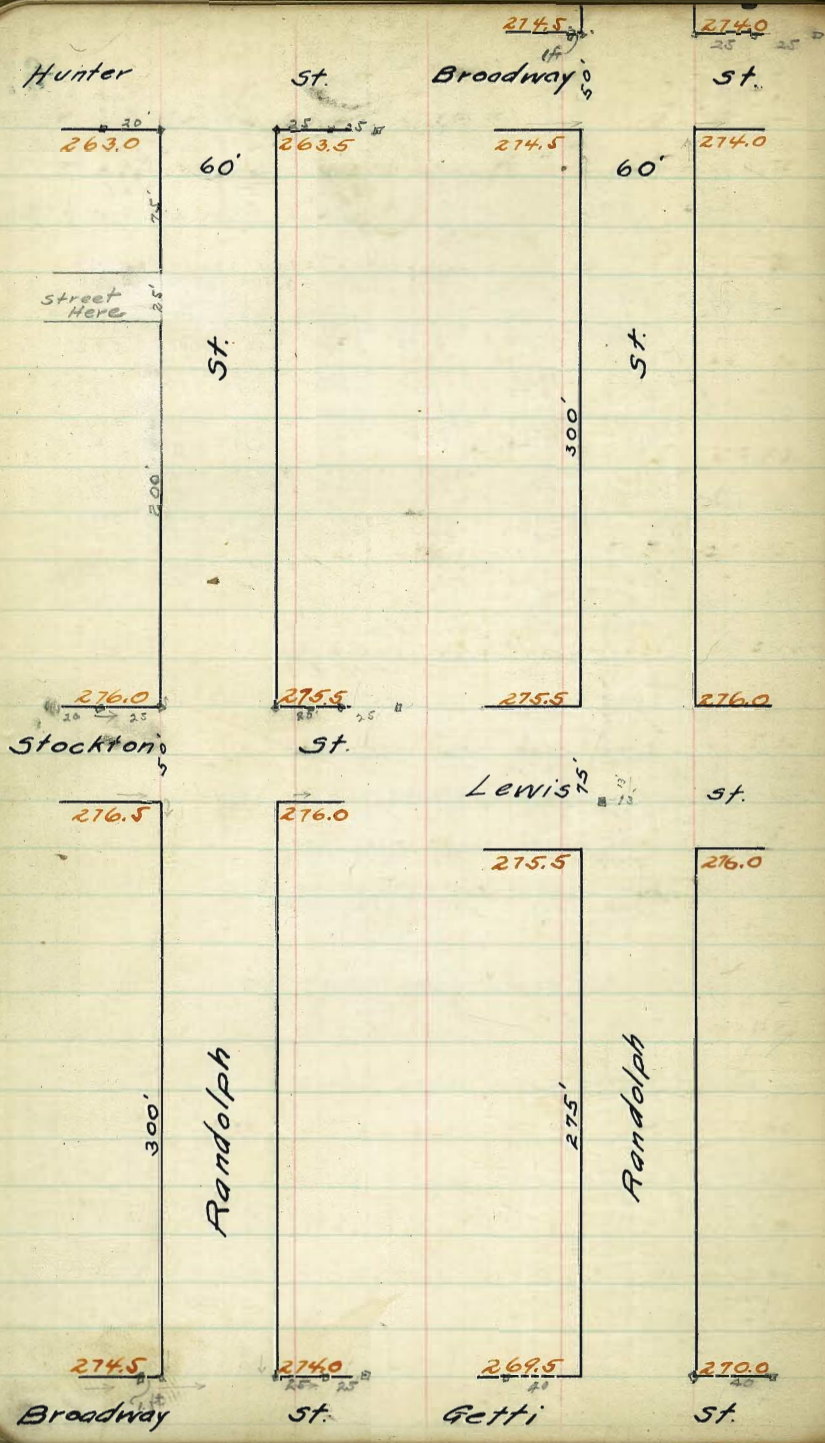 274.5 274.0
1ft 25 25
Hunter St. Broadway 50' St.
20' 25 25
263.0 263.5 274.5 274.0
60' 60'
75'
Street
Here
25'
St. St.
300'
200'
276.0 275.5 275.5 276.0
20 25 25 25
Stockton 50' St.
Lewis 75' 13' 13' St.
276.5 276.0
275.5 276.0
300' Randolph 275' Randolph
274.5 274.0 269.5 270.0
1ft 25 25 40 40
Broadway St. Getti St.